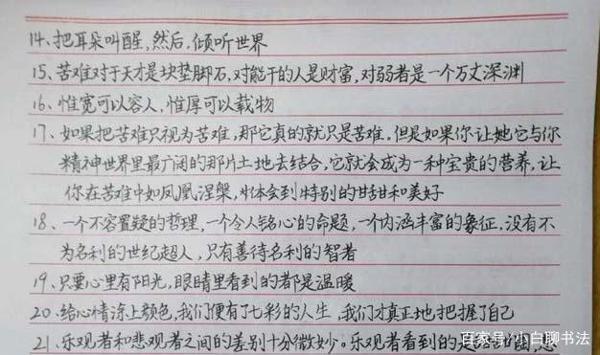 14、把耳朵叫醒，然后，倾听世界
15、苦难对于天才是块垫脚石，对能干的人是财富，对弱者是一个万丈深渊
16、惟宽可以容人，惟厚可以载物
17、如果把苦难只视为苦难，那它真的就只是苦难。但是如果你让她它与你
精神世界里最广阔的那片土地去结合，它就会成为一种宝贵的营养，让
你在苦难中如凤凰涅槃，体会到特别的甘甜和美好
18、一个不容置疑的哲理，一个令人铭心的命题，一个内涵丰富的象征，没有不
为名利的世纪超人，只有善待名利的智者
19、只要心里有阳光，眼睛里看到的都是温暖
20、给心情涂上颜色，我们便有了七彩的人生，我们才真正地把握了自己
21、乐观者和悲观者之间的差别十分微妙。乐观者看到的是
百家号/小白聊书法